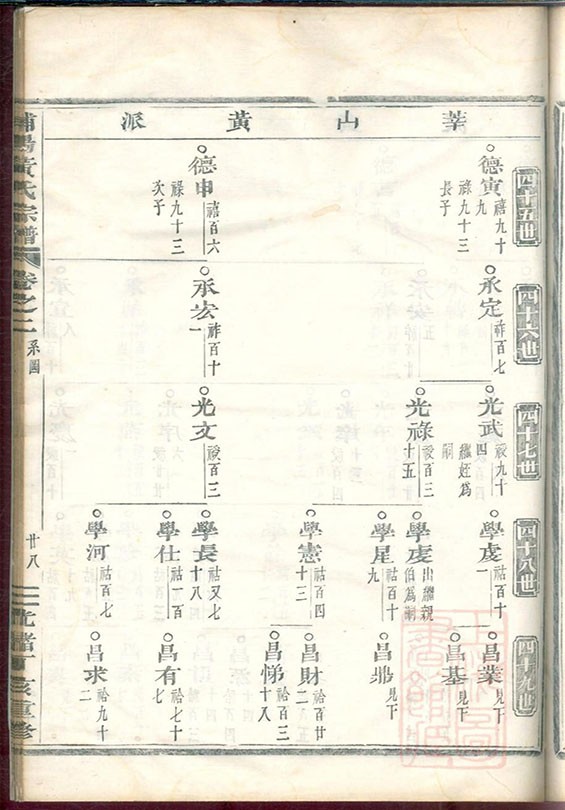 莘山黃派
四十五世
德寅 禧九十九
祿九十三長子
德申 禧百六
祿九十三次子
四十六世
承定 祚百七
承宏 祚百十一
四十七世
光武 祾九十四
繼姪為嗣
光祿 祾百三十五
光文 祾百三
四十八世
學虔 祜百十一
學虔 出繼親伯為嗣
學星 祜百十九
學憲 祜百四十三
學長 祜又七十八
學仕 祜一百
學河 祜百七
四十九世
昌業 見下
昌基 見下
昌鼎 見下
昌財 祫百廿二
昌悌 祫百三十八
昌有 祫七十七
昌求 祫九十二
浦陽黃氏宗譜
卷之二 系圖
廿八
光緒丁亥重修